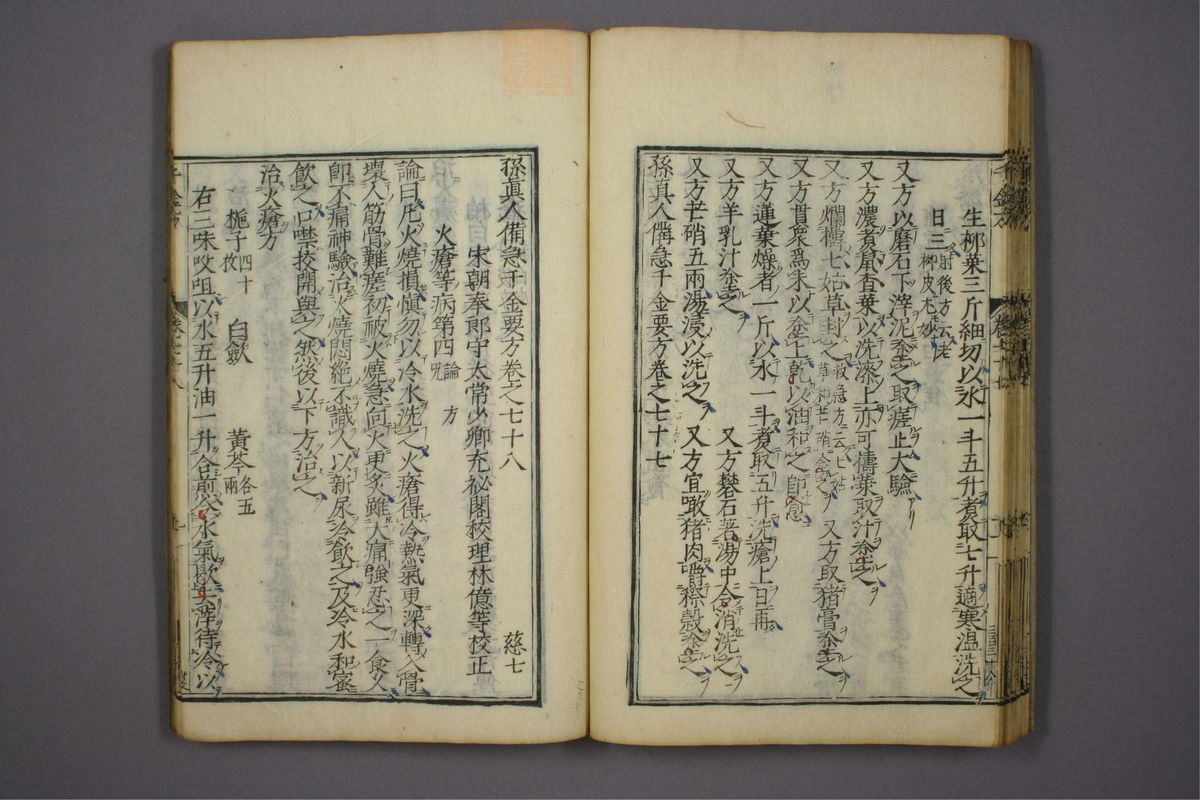 生柳葉三斤細切以水一斗五升煮取七升適寒温洗之
日三 肘後方云老柳皮尤妙
又方以磨石下滓泥塗之取瘥止大驗
又方濃煮鼠査葉以洗漆上亦可擣葉取汁塗之
又方爛擣七姑草封之 又方取猪膏塗之
又方貫衆爲末以塗上乾以油和之即愈
又方蓮葉燥者一斤以水一斗煮取五升洗瘡上日再
又方羊乳汁塗之 又方礬石著湯中令消洗之
又方芒硝五兩湯浸以洗之 又方宜噉猪肉嚼穄穀塗之
孫真人備急千金要方卷之七十七
孫真人備急千金要方卷之七十八 慈七
宋朝奉郎守太常少卿充祕閣校理林億等校正
火瘡等病第四 論 呪 方
論曰凡火燒損慎勿以冷水洗之火瘡得冷熱氣更深轉入骨
壞人筋骨難瘥初被火燒急向火更炙雖大痛強忍之一食久
即不痛神驗治火燒悶絶不識人以新尿冷飲之及冷水和蜜
飲之口噤挍開與之然後以下方治之
治火瘡方
梔子四十枚 白蘞 黄芩各五兩
右三味㕮咀以水五升油一升合煎令水氣歇去滓待冷以
千金方